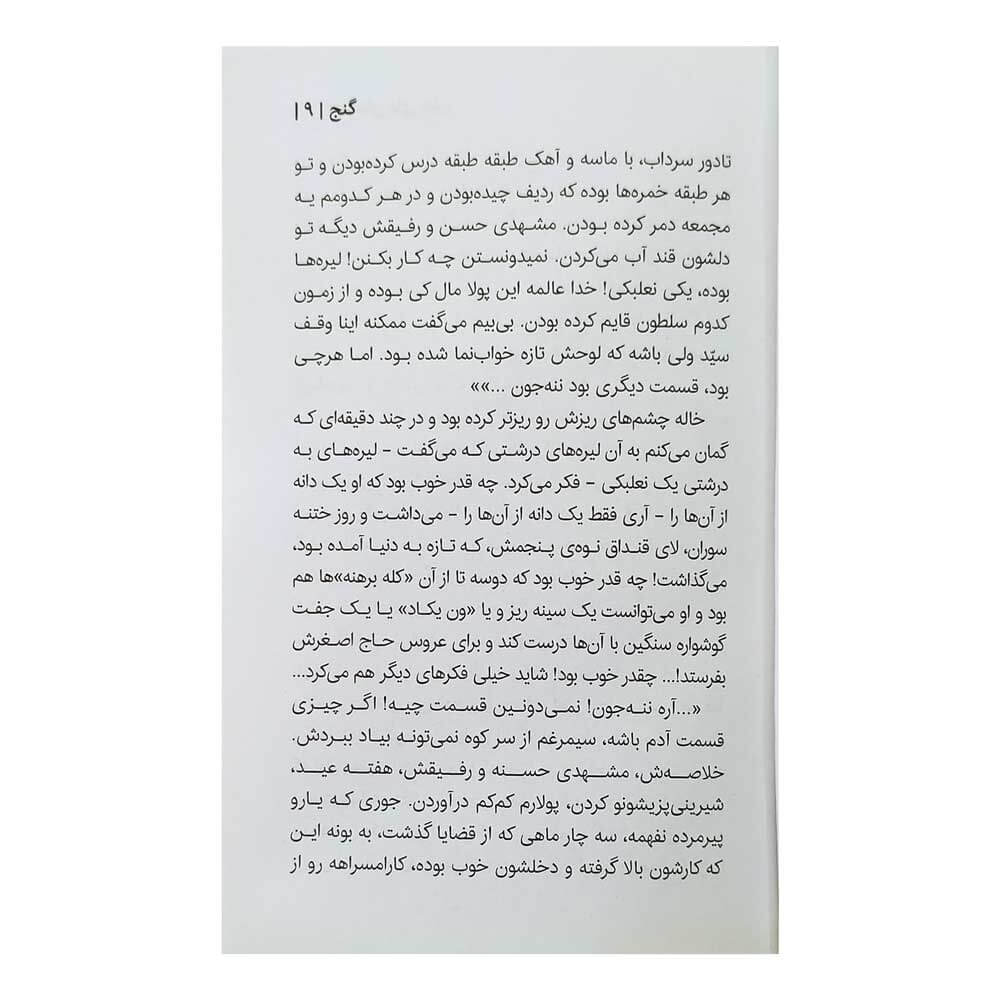 گنج | ۹ |
تادور سرداب، با ماسه و آهک طبقه طبقه درس کرده‌بودن و تو
هر طبقه خمره‌ها بوده که ردیف چیده‌بودن و در هر کدومم یه
مجمعه دمر کرده بودن. مشهدی حسن و رفیقش دیگه تو
دلشون قند آب می‌کردن. نمیدونستن چه کار بکنن! لیره‌ها
بوده، یکی نعلبکی! خدا عالمه این پولا مال کی بوده و از زمون
کدوم سلطون قایم کرده بودن. بی‌بیم می‌گفت ممکنه اینا وقف
سیّد ولی باشه که لوحش تازه خواب‌نما شده بود. اما هرچی
بود، قسمت دیگری بود ننه‌جون ...»»
خاله چشم‌های ریزش رو ریزتر کرده بود و در چند دقیقه‌ای که
گمان می‌کنم به آن لیره‌های درشتی که می‌گفت – لیره‌های به
درشتی یک نعلبکی – فکر می‌کرد. چه قدر خوب بود که او یک دانه
از آن‌ها را – آری فقط یک دانه از آن‌ها را – می‌داشت و روز ختنه
سوران، لای قنداق نوه‌ی پنجمش، که تازه به دنیا آمده بود،
می‌گذاشت! چه قدر خوب بود که دوسه تا از آن «کله برهنه»ها هم
بود و او می‌توانست یک سینه ریز و یا «ون یکاد» یا یک جفت
گوشواره سنگین با آن‌ها درست کند و برای عروس حاج اصغرش
بفرستد!... چقدر خوب بود! شاید خیلی فکرهای دیگر هم می‌کرد...
«...آره ننه‌جون! نمی‌دونین قسمت چیه! اگر چیزی
قسمت آدم باشه، سیمرغم از سر کوه نمی‌تونه بیاد ببردش.
خلاصه‌ش، مشهدی حسنه و رفیقش، هفته عید،
شیرینی‌پزیشونو کردن، پولارم کم‌کم درآوردن. جوری که یارو
پیرمرده نفهمه، سه چار ماهی که از قضایا گذشت، به بونه این
که کارشون بالا گرفته و دخلشون خوب بوده، کارامسراهه رو از